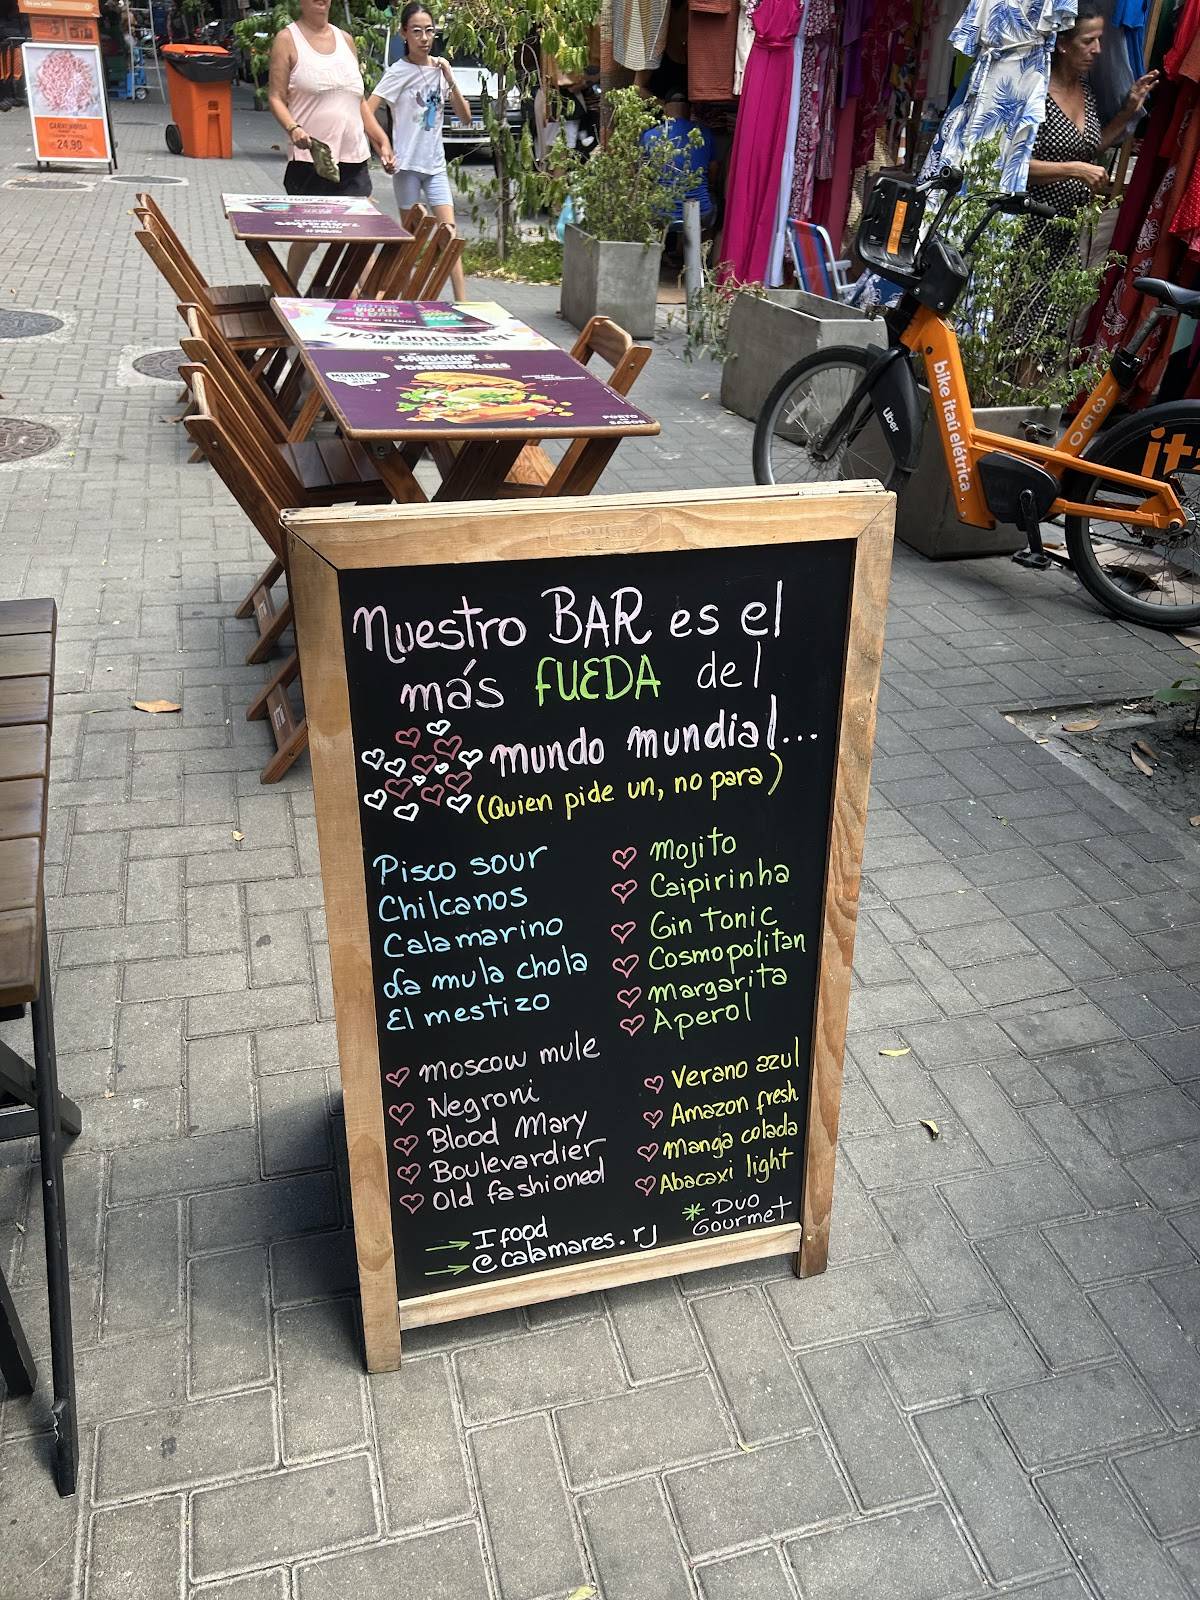 CARNE MOÍDA
24,90
SANDUÍCHE
POSSIBILIDADES
MONTADO
PORTO
DO SABOR
bike itaú elétrica
Uber
Nuestro BAR es el
más FUEDA del
mundo mundial...
(Quien pide un, no para)
Pisco sour
Chilcanos
Calamarino
La mula chola
El mestizo
Mojito
Caipirinha
Gin Tonic
Cosmopolitan
Margarita
Aperol
Moscow mule
Negroni
Blood Mary
Boulevardier
Old fashioned
Verano azul
Amazon fresh
Manga colada
Abacaxi light
→ Ifood
→ @calamares.rj
* Duo
Gourmet